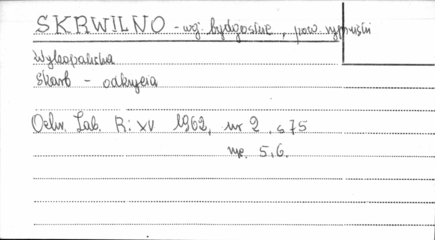 SKRWILNO - wj. bydgoskie, pow. rypiński
Wykopaliska
Skarb - odkrycia
Ochr. Zab. R: XV 1962, nr 2, s 75
ryc. 5,6.